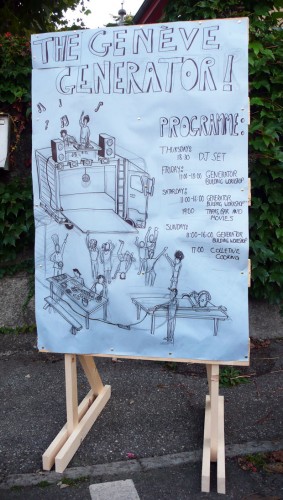 THE GENÈVE
GENERATOR!
PROGRAMME:
THURSDAY:
DJ SET
FRIDAY:
11:00-18:00 GENERATOR
BUILDING WORKSHOP
SATURDAY:
11:00-16:00 GENERATOR
BUILDING WORKSHOP
19:00 BAR AND
MOVIES
SUNDAY:
11:00-16:00 GENERATOR
BUILDING WORKSHOP
17:00 COLLECTIVE
COOKING